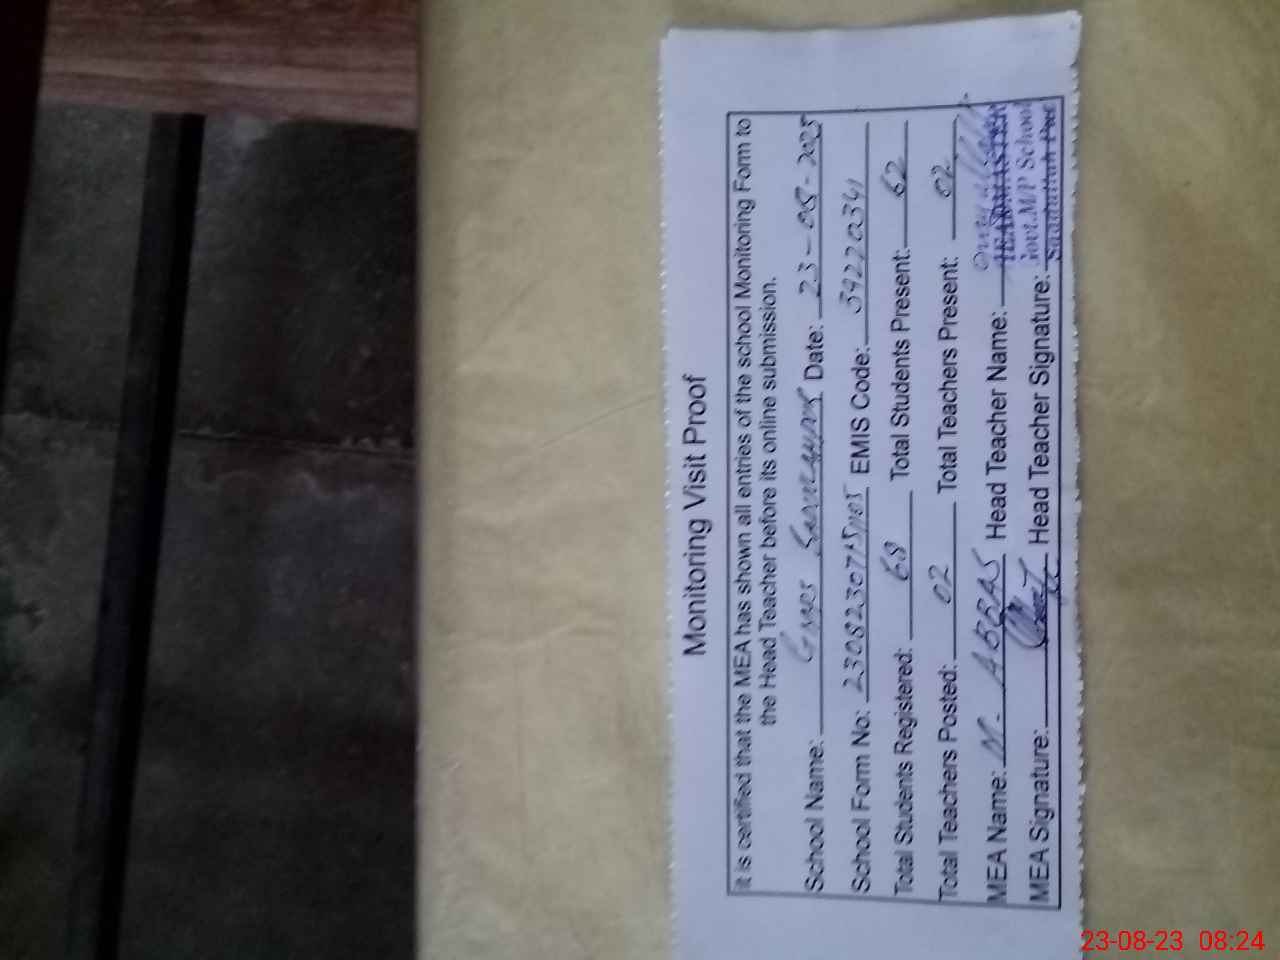 Monitoring Visit Proof
It is certified that the MEA has shown all entries of the school Monitoring Form to
the Head Teacher before its online submission.
School Name: Date: 23-08-2023
School Form No: EMIS Code: 39220341
Total Students Registered: 68 Total Students Present: 62
Total Teachers Posted: 02 Total Teachers Present: 02
MEA Name: M. ABBAS Head Teacher Name: HEADMASTER
MEA Signature: Head Teacher Signature: Govt.M/P School
23-08-23 08:24